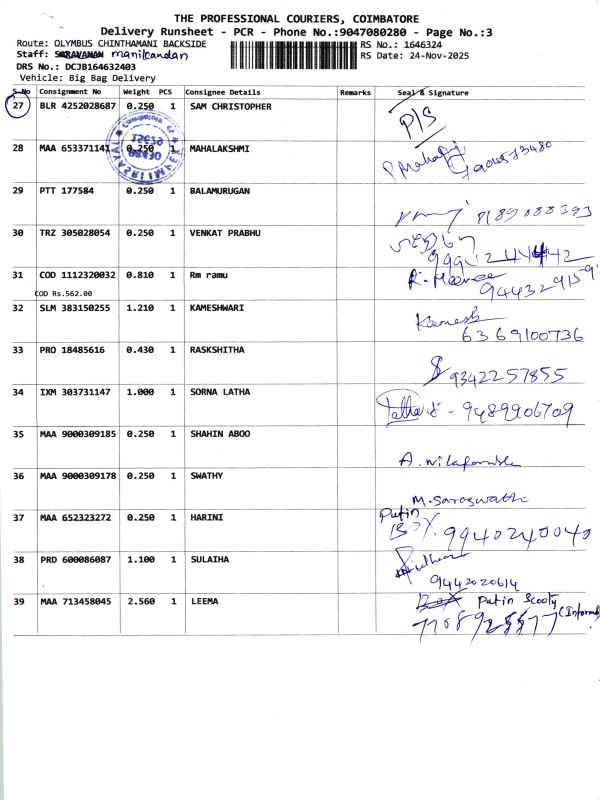 THE PROFESSIONAL COURIERS, COIMBATORE
Delivery Runsheet - PCR - Phone No.:9047080280 - Page No.:3
Route: OLYMBUS CHINTHAMANI BACKSIDE
RS No.: 1646324
Staff: SARAVANAN manikandan
RS Date: 24-Nov-2025
DRS No.: DCJB164632403
Vehicle: Big Bag Delivery
S.No Consignment No Weight PCS Consignee Details Remarks Seal & Signature
27 BLR 4252028687 0.250 1 SAM CHRISTOPHER P/S
28 MAA 653371141 0.250 1 MAHALAKSHMI
29 PTT 177584 0.250 1 BALAMURUGAN 8189088393
30 TRZ 305028054 0.250 1 VENKAT PRABHU
31 COD 1112320032 0.810 1 Rm ramu
COD Rs.562.00
32 SLM 383150255 1.210 1 KAMESHWARI Kamesh
6369100736
33 PRO 18485616 0.430 1 RASKSHITHA 9342257855
34 IXM 303731147 1.000 1 SORNA LATHA 9489906709
35 MAA 9000309185 0.250 1 SHAHIN ABOO
36 MAA 9000309178 0.250 1 SWATHY M.Saraswathi
37 MAA 652323272 0.250 1 HARINI Putin
BOX 9940240040
38 PRD 600086087 1.100 1 SULAIHA
9442020614
39 MAA 713458045 2.560 1 LEEMA Box Putin Scooty
(Informed)